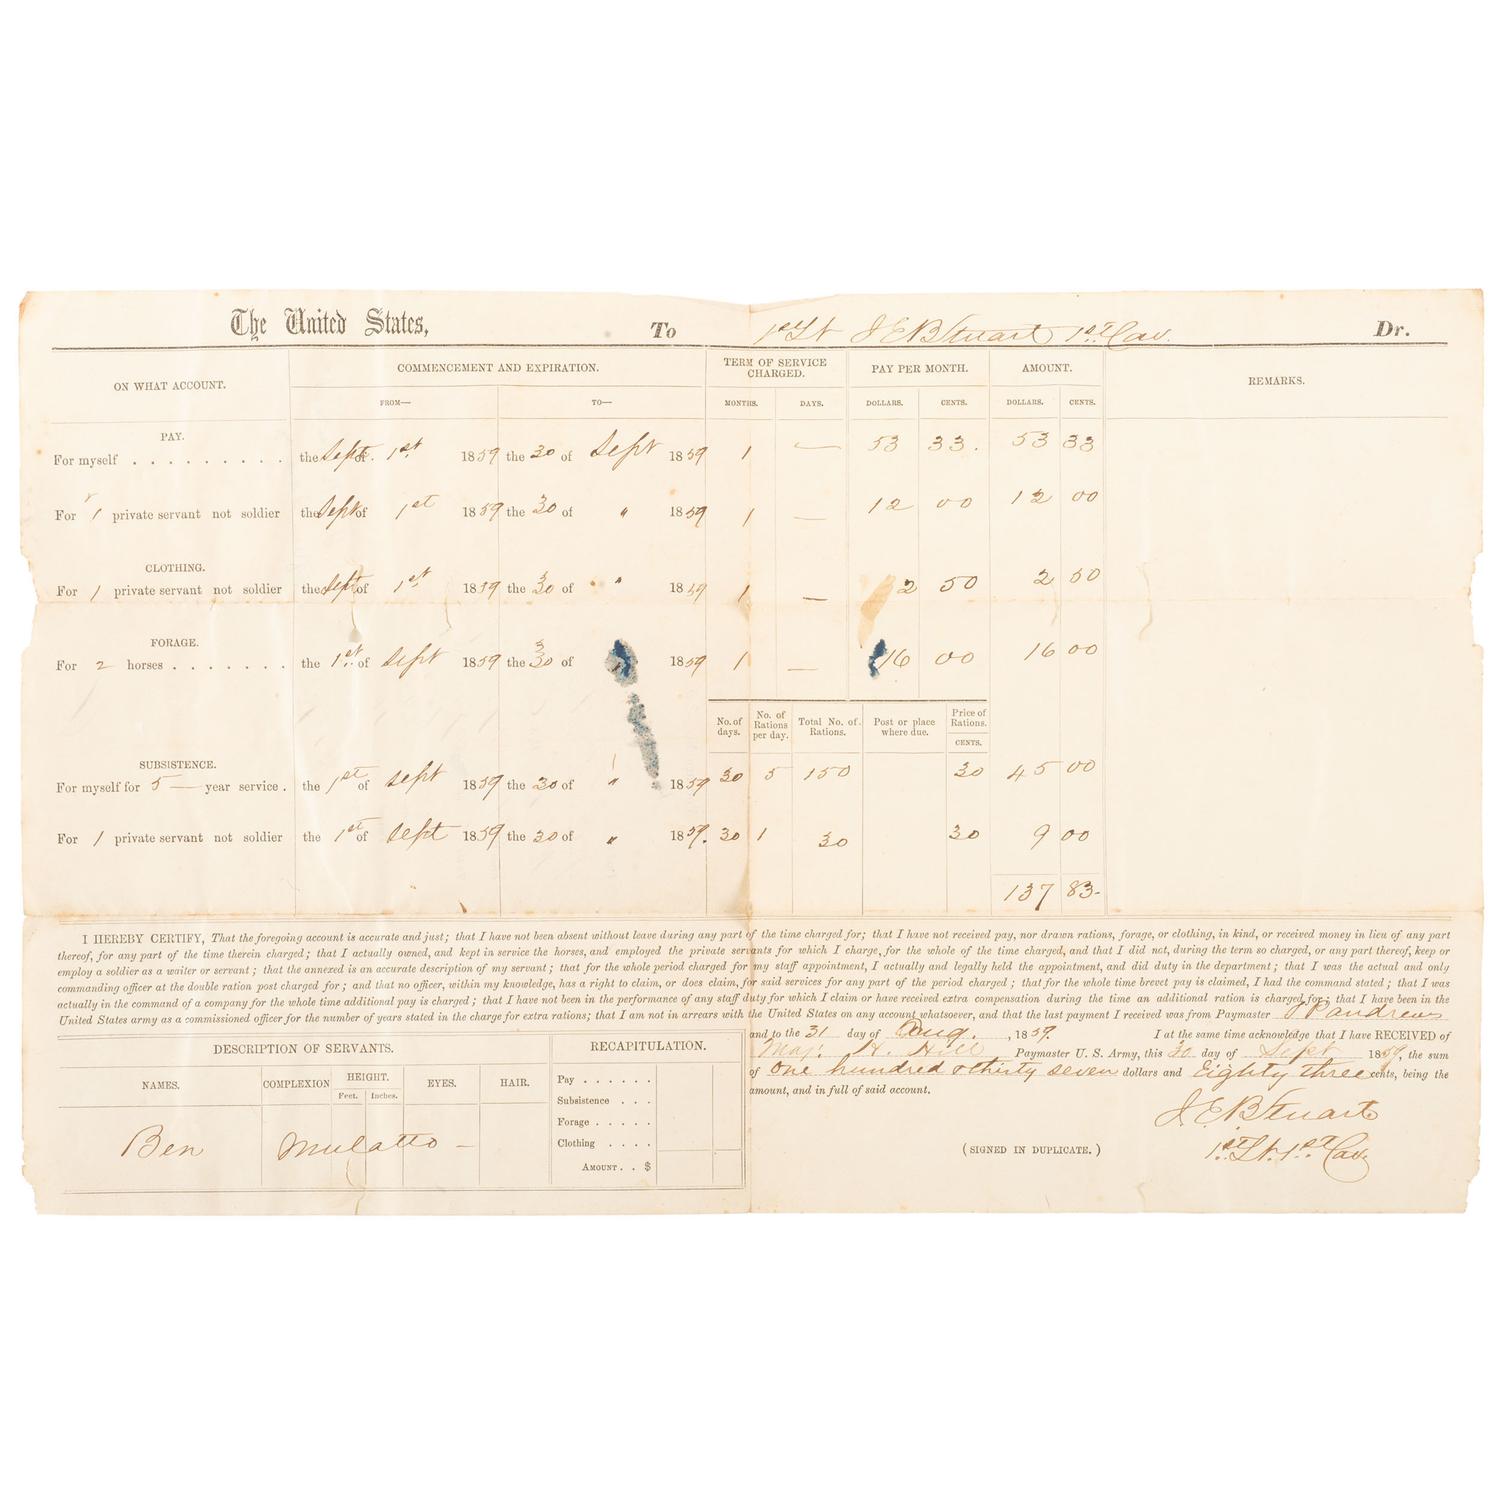 The United States, To 1st Lt J E B Stuart 1st Cav. Dr.
ON WHAT ACCOUNT. COMMENCEMENT AND EXPIRATION. TERM OF SERVICE CHARGED. PAY PER MONTH. AMOUNT. REMARKS.
FROM— TO— MONTHS. DAYS. DOLLARS. CENTS. DOLLARS. CENTS.
PAY.
For myself . . . . . . . . . the Sept of 1st 1859 the 30 of Sept 1859 1 — 53 33. 53 33
For 1 private servant not soldier the Sept of 1st 1859 the 30 of " 1859 1 — 12 00 12 00
CLOTHING.
For 1 private servant not soldier the Sept of 1st 1859 the 30 of " 1859 1 — 2 50 2 50
FORAGE.
For 2 horses . . . . . . . the 1st of Sept 1859 the 30 of 1859 1 — 16 00 16 00
No. of days. No. of Rations per day. Total No. of Rations. Post or place where due. Price of Rations. CENTS.
SUBSISTENCE.
For myself for 5 — year service. the 1st of Sept 1859 the 30 of " 1859 30 5 150 30 45 00
For 1 private servant not soldier the 1st of Sept 1859 the 30 of " 1859. 30 1 30 30 9 00
137 83-
I HEREBY CERTIFY, That the foregoing account is accurate and just; that I have not been absent without leave during any part of the time charged for; that I have not received pay, nor drawn rations, forage, or clothing, in kind, or received money in lieu of any part
thereof, for any part of the time therein charged; that I actually owned, and kept in service the horses, and employed the private servants for which I charge, for the whole of the time charged, and that I did not, during the term so charged, or any part thereof, keep or
employ a soldier as a waiter or servant; that the annexed is an accurate description of my servant; that for the whole period charged for my staff appointment, I actually and legally held the appointment, and did duty in the department; that I was the actual and only
commanding officer at the double ration post charged for; and that no officer, within my knowledge, has a right to claim, or does claim, for said services for any part of the period charged; that for the whole time brevet pay is claimed, I had the command stated; that I was
actually in the command of a company for the whole time additional pay is charged; that I have not been in the performance of any staff duty for which I claim or have received extra compensation during the time an additional ration is charged for; that I have been in the
United States army as a commissioned officer for the number of years stated in the charge for extra rations; that I am not in arrears with the United States on any account whatsoever, and that the last payment I received was from Paymaster Andrews
and to the 31 day of Aug. , 1859. I at the same time acknowledge that I have RECEIVED of
Maj. H. Hill Paymaster U. S. Army, this 30 day of Sept 1859, the sum
of One hundred & thirty seven dollars and Eighty three cents, being the
amount, and in full of said account.
J E B Stuart
1st Lt. 1st Cav.
(SIGNED IN DUPLICATE.)
DESCRIPTION OF SERVANTS.
NAMES. COMPLEXION HEIGHT. EYES. HAIR.
Feet. Inches.
Ben Mulatto —
RECAPITULATION.
Pay . . . . . .
Subsistence . . .
Forage . . . . .
Clothing . . . .
AMOUNT . . $